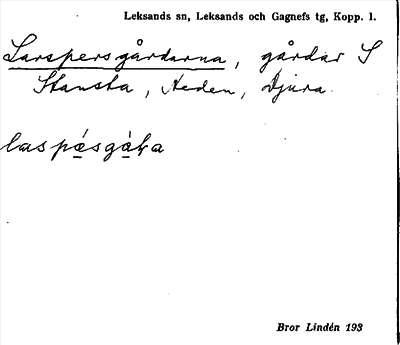 Leksands sn, Leksands och Gagnefs tg, Kopp. l.
Larspersgårdarna, gårdar S
Stansta, Heden, Djura.
laspä́sgàka
Bror Lindén 193